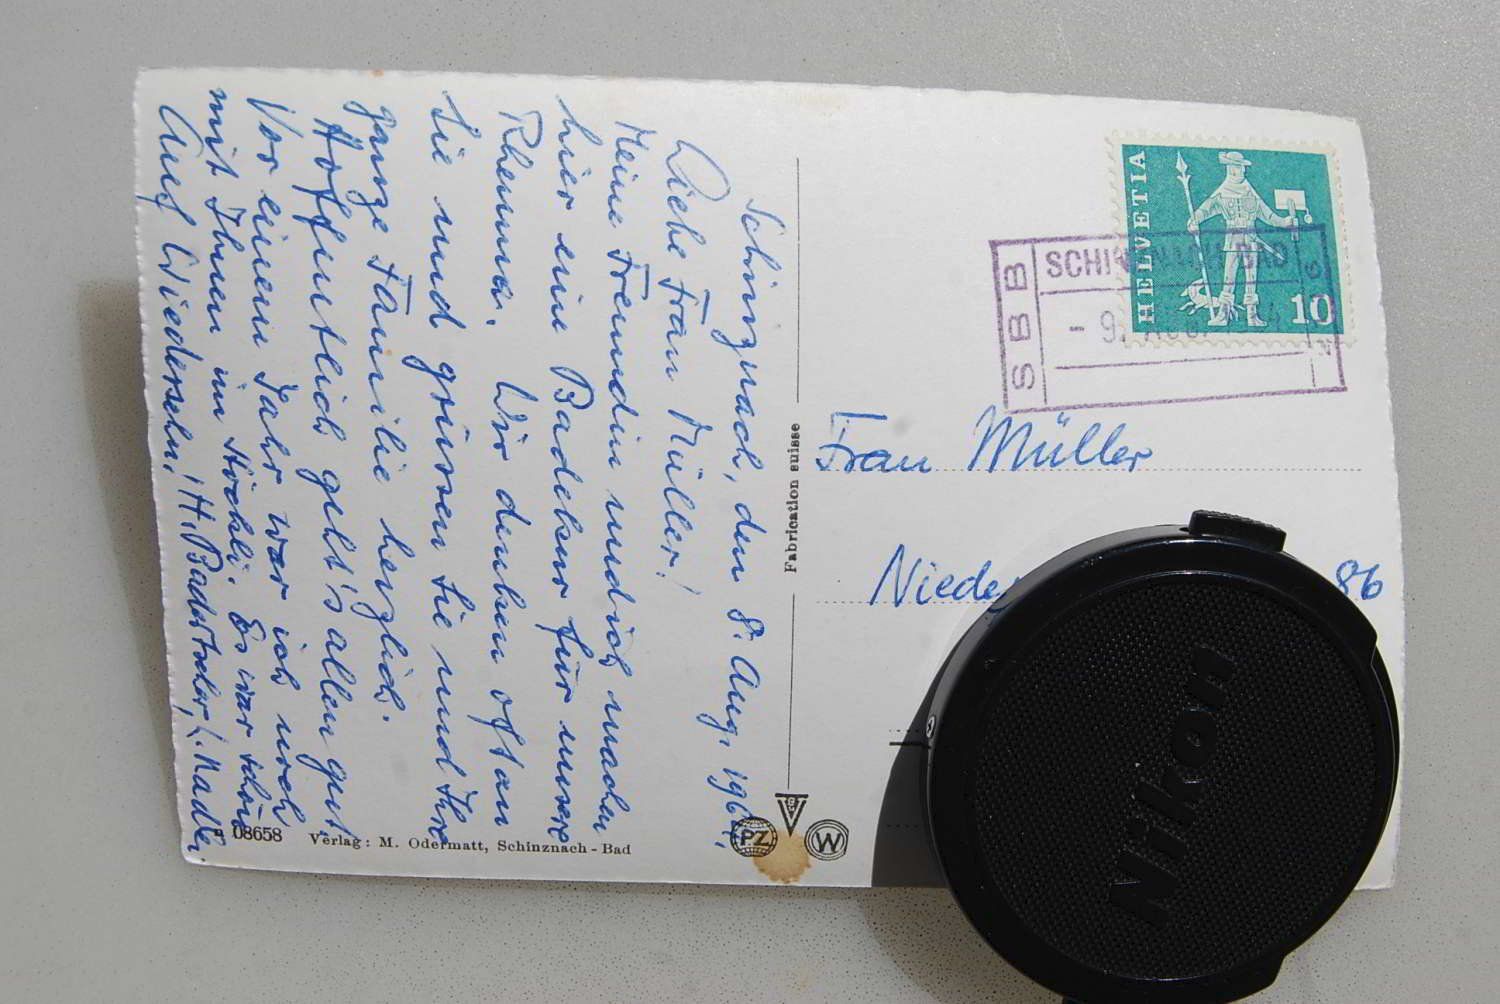 Schinznach, den 8. Aug. 196
Liebe Frau Müller!
Meine Freundin und ich machen
hier eine Badekur für unsere
Rheuma. Wir denken oft an
Sie und grüssen Sie und Ihre
ganze Familie herzlich.
Hoffentlich geht's allen gut
Vor einem Jahr war ich noch
mit Ihnen im Höckli. Es war schön
Auf Wiedersehn! H. Badertscher, L. Nadler.
08658 Verlag: M. Odermatt, Schinznach-Bad
Fabrication suisse
PZ
W
HELVETIA
10
SBB
SCHINZNACH BAD
- 9. AUG.
Frau Müller
Niede 86
Nikon